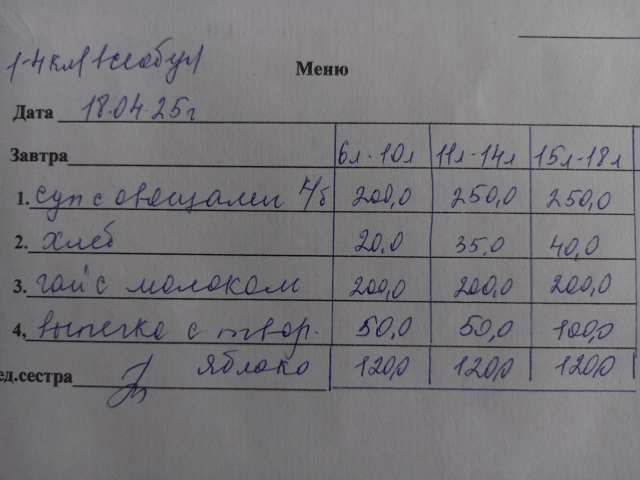 1-4 кл (всеобуч)
Меню
Дата 18.04.25г
Завтра 6л-10л 11л-14л 15л-18л
1. суп с овощами г/б 200,0 250,0 250,0
2. хлеб 20,0 35,0 40,0
3. чай с молоком 200,0 200,0 200,0
4, выпечка с твор. 50,0 50,0 100,0
ед.сестра яблоко 120,0 120,0 120,0